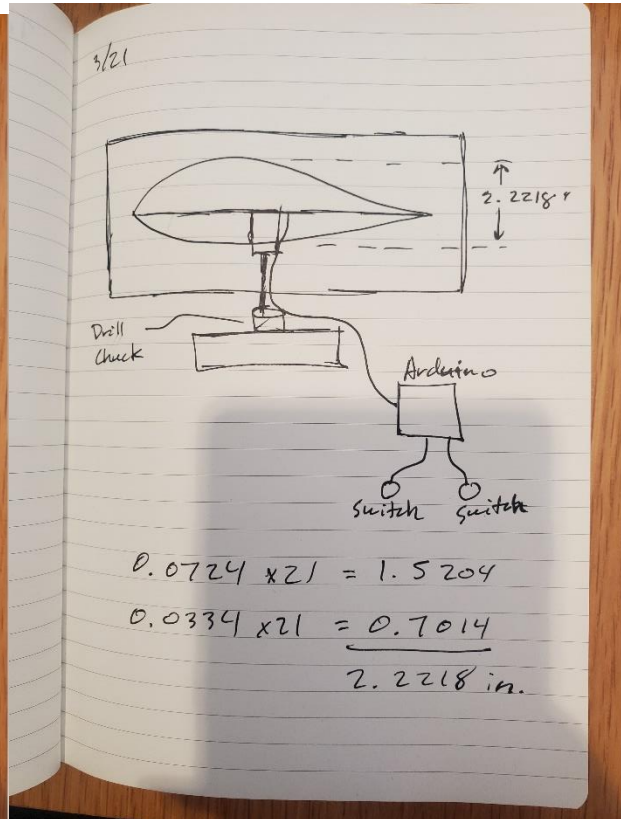 3/21
2.2218"
Drill
Chuck
Arduino
Switch Switch
0.0724 x21 = 1.5204
0.0334 x21 = 0.7014
2.2218 in.